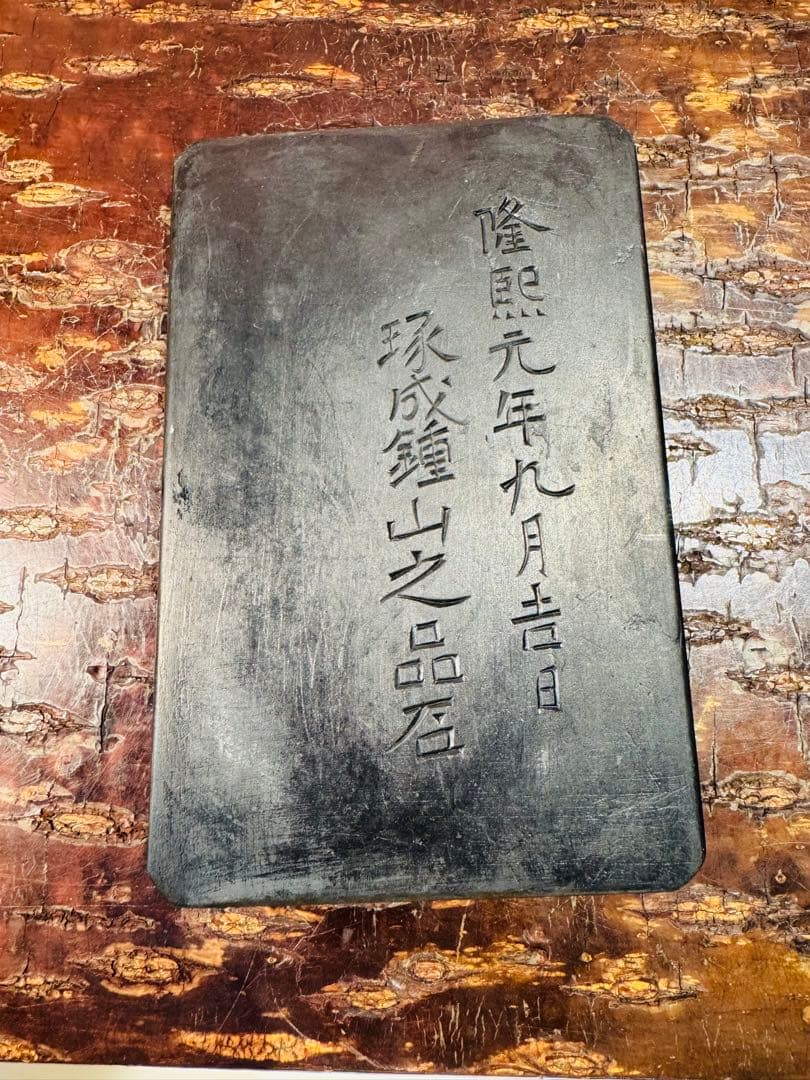 隆熙元年九月吉日
琢成鍾山之品石